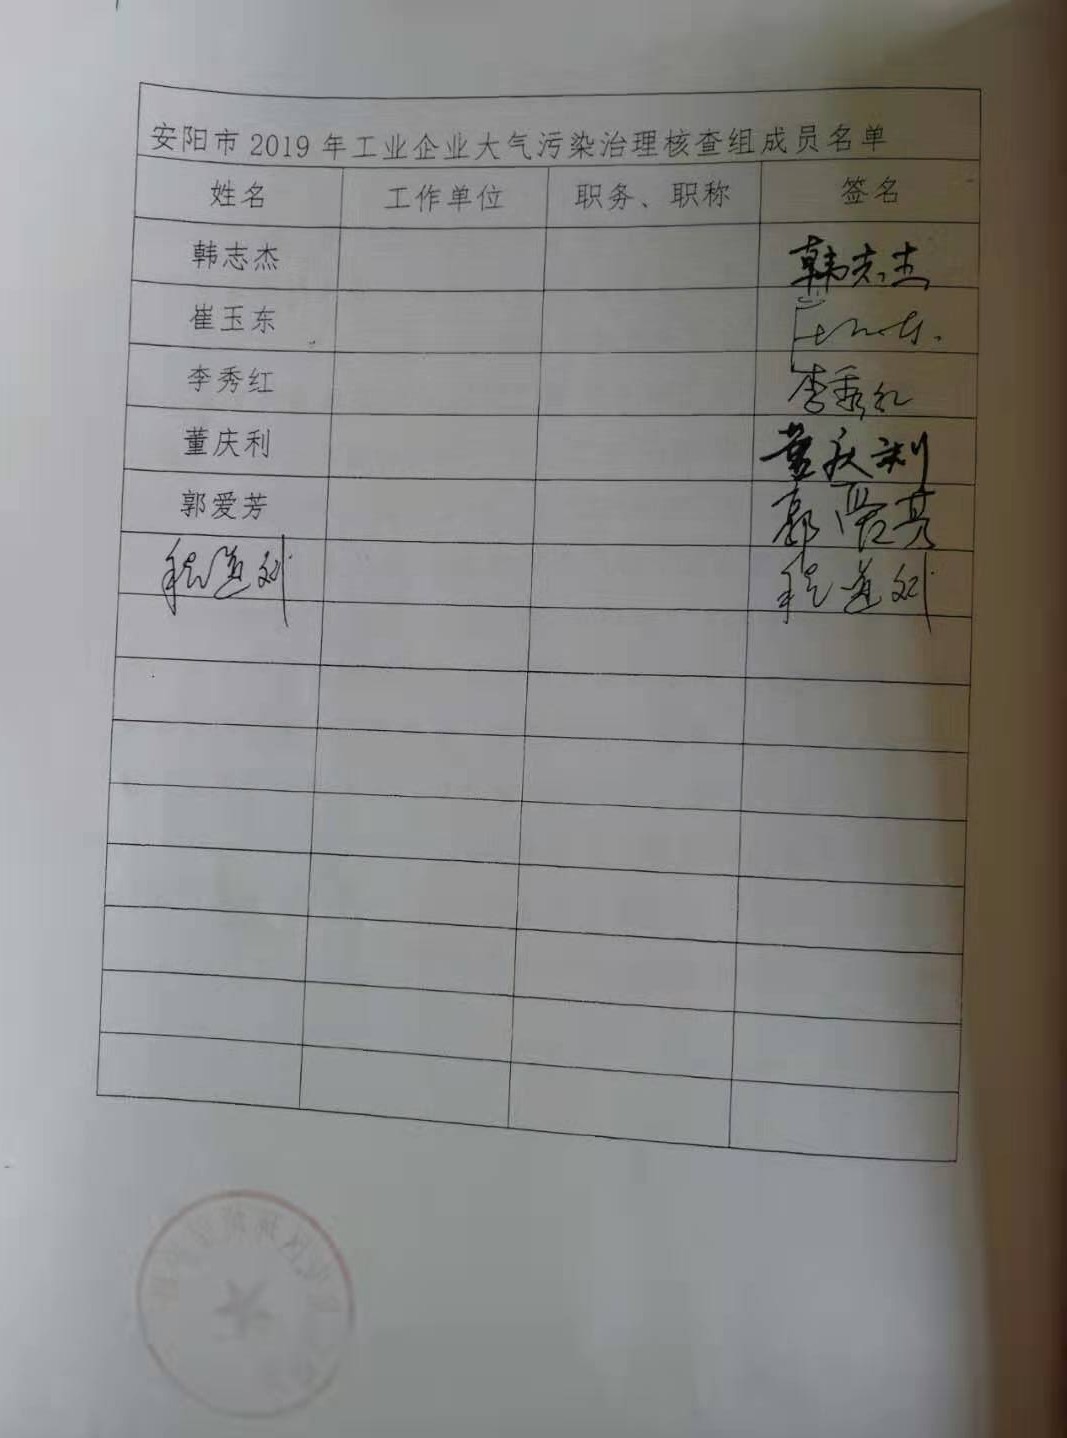 安阳市 2019 年工业企业大气污染治理核查组成员名单
姓名 工作单位 职务、职称 签名
韩志杰 韩志杰
崔玉东
李秀红 李秀红
董庆利 董庆利
郭爱芳 郭爱芳
程道 程道